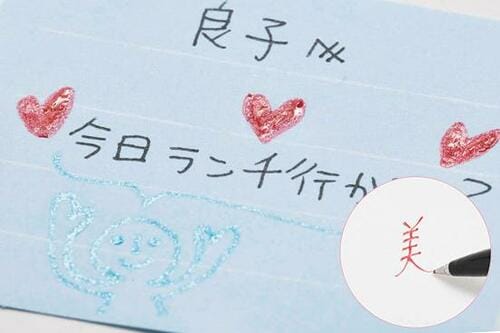 良子へ
今日ランチ行か ?
美